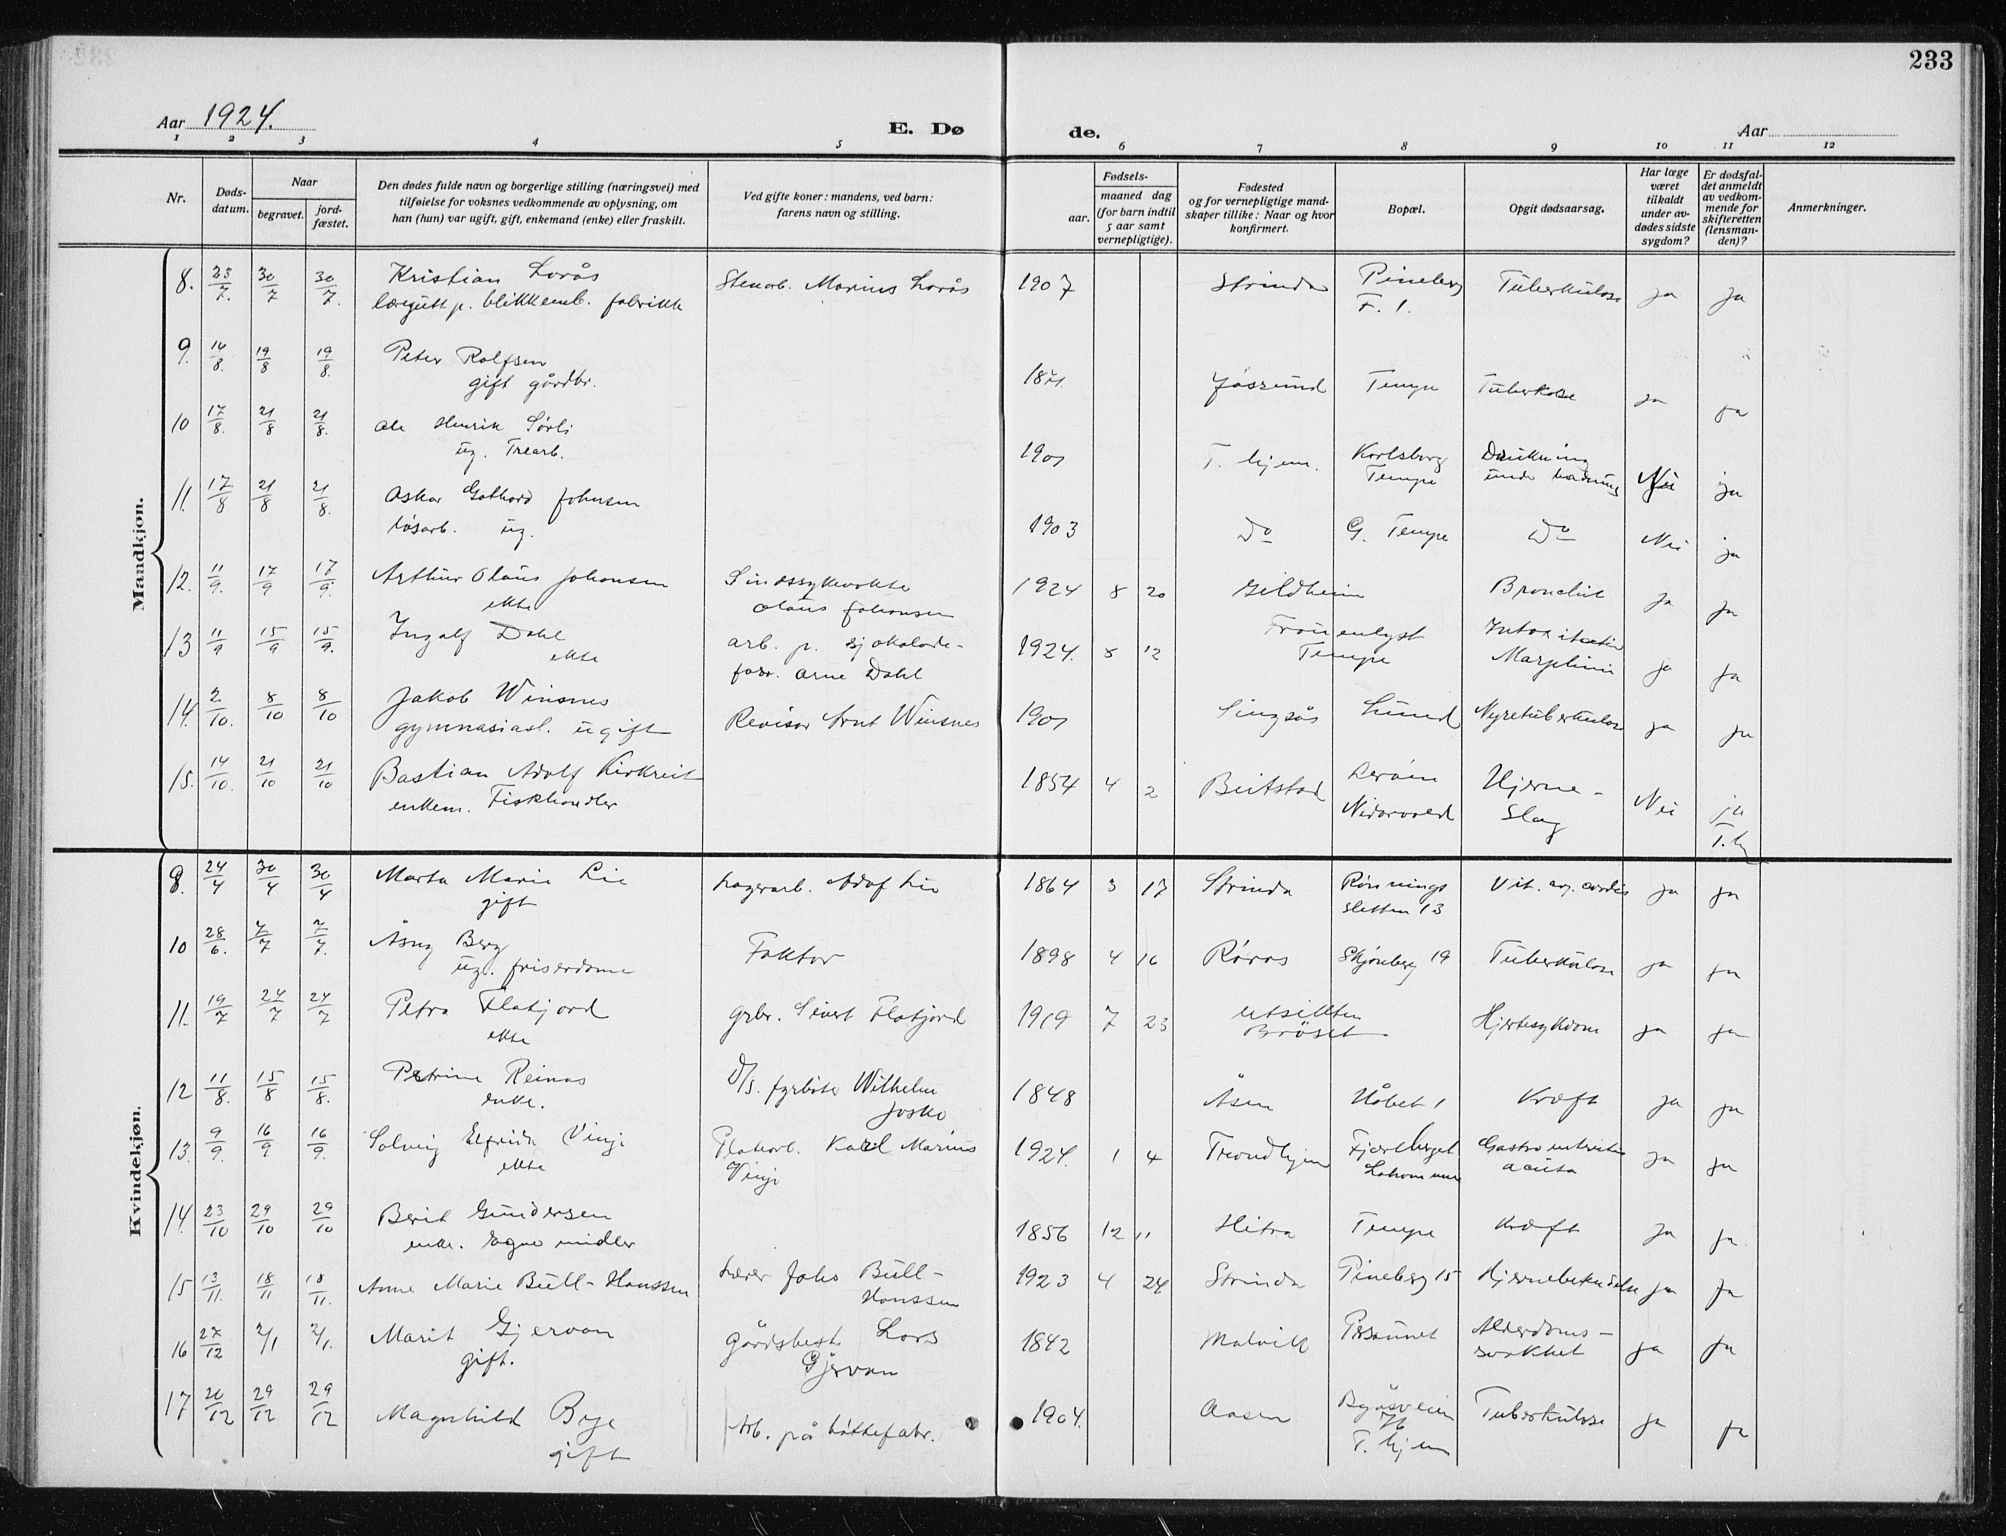 233
Aar 1924.
E. Dø
de.
Aar
1 2 3 4 5 6 7 8 9 10 11 12
Nr.
Døds-
datum.
Naar
begravet.
jord-
fæstet.
Den dødes fulde navn og borgerlige stilling (næringsvei) med
tilføielse for voksnes vedkommende av oplysning, om
han (hun) var ugift, gift, enkemand (enke) eller fraskilt.
Ved gifte koner: mandens, ved barn:
farens navn og stilling.
Fødsels-
aar.
maaned dag
(for barn indtil
5 aar samt
vernepligtige).
Fødested
og for vernepligtige mand-
skaper tillike: Naar og hvor
konfirmert.
Bopæl.
Opgit dødsaarsag.
Har læge
været
tilkaldt
under av-
dødes sidste
sygdom?
Er dødsfal-
det anmeldt
av vedkom-
mende for
skifteretten
(lensman-
den)?
Anmerkninger.
Mandkjøn.
8. 23/7. 30/7 30/7. Kristian Lorås Stenarb. Marius Lorås 1907 Strinda Pineberg Tuberkulose ja ja
p. blikkemb. fabrikk F. 1.
9. 14/8. 19/8 19/8. Peter Rolfsen
gift gårdbr. Jøssund Tempe ja ja
10 17/8. 21/8 21/8. Ole Henrik Sørli
ug. Trearb. T. hjem. Karlsborg Drukning
Tempe under badning Nei ja
11. 17/8 21/8 21/8. Oskar Gothard Johnsen
løsarb. ug. 1903 Do G. Tempe Do Nei ja
12. 11/9. 17/9 17/9. Arthur Olaus Johansen Sindssykevokte 1924 8 20 Gildheim ja ja
ekte Olaus Johansen
13 11/9 15/9 15/9. Ingolf Dahl arb. p. sjokolade- 1924. 8 12 Frouenlyst
ekte fabr. Arne Dahl Tempe ja ja
14. 2/10. 8/10 8/10 Jakob Winsnes Revisor Arnt Winsnes Singsås Lund Nyretuberkulose ja ja
gymnasiast. ugift
15. 14/10. 21/10 21/10 Bastian Adolf Kirkreit 1854 4 2 Beitstad Lerøen Hjerne-
enkem. Fiskhandler Nidarvold slag Nei ja
T. hj
Kvindekjøn.
9. 24/4 30/4 30/4 Marta Marie Lie Lagerarb. Adolf Lie 1864 3 17 Strinda Rønnings Vit. org. cordis ja ja
gift sletten 13
10 28/6. 7/7 7/7. Åsny Berg Faktor 1898 4 16 Røros Skjønberg 19 Tuberkulose ja ja
ug. friserdame
11. 19/7 24/7 24/7 Petra Flatjord grbr. Sivert Flatjord 1919 7 23 Utsikten Hjertesykdom ja ja
ekte Brøset
12 11/8. 15/8 15/8. Petrine Reinås D/S. fyrbøter Wilhelm 1848 Åsen Håbet 1 Kræft ja ja
enke.
13. 9/9. 16/9 16/9. Solveig Elfrida Vinje Karl Marius 1924. 1 4 Trondhjem Fjæreberget Gastro enteritis ja ja
ekte Vinje acuta
14. 23/10 29/10 29/10 Berit Gundersen 1856 12 11 Hitra Tempe Kræft ja ja
enke. Egne midler
15 13/11. 18/11 18/11. Anne Marie Bull-Hanssen Lærer Johs Bull- 1923 4 24 Strinda Pineberg 15 Hjernebetendelse ja ja
Hanssen
16 27/12 2/1 2/1. Marit Gjervan Gårdsbest. Lars 1842 Malvik Presthuset Alderdoms-
gift. Gjervan svakhet ja ja
17 20/12 29/12 29/12 Magnhild Bye Arb. på hattefabr. 1904. Aasen Byåsveien Tuberkulose ja ja
gift T. hjem